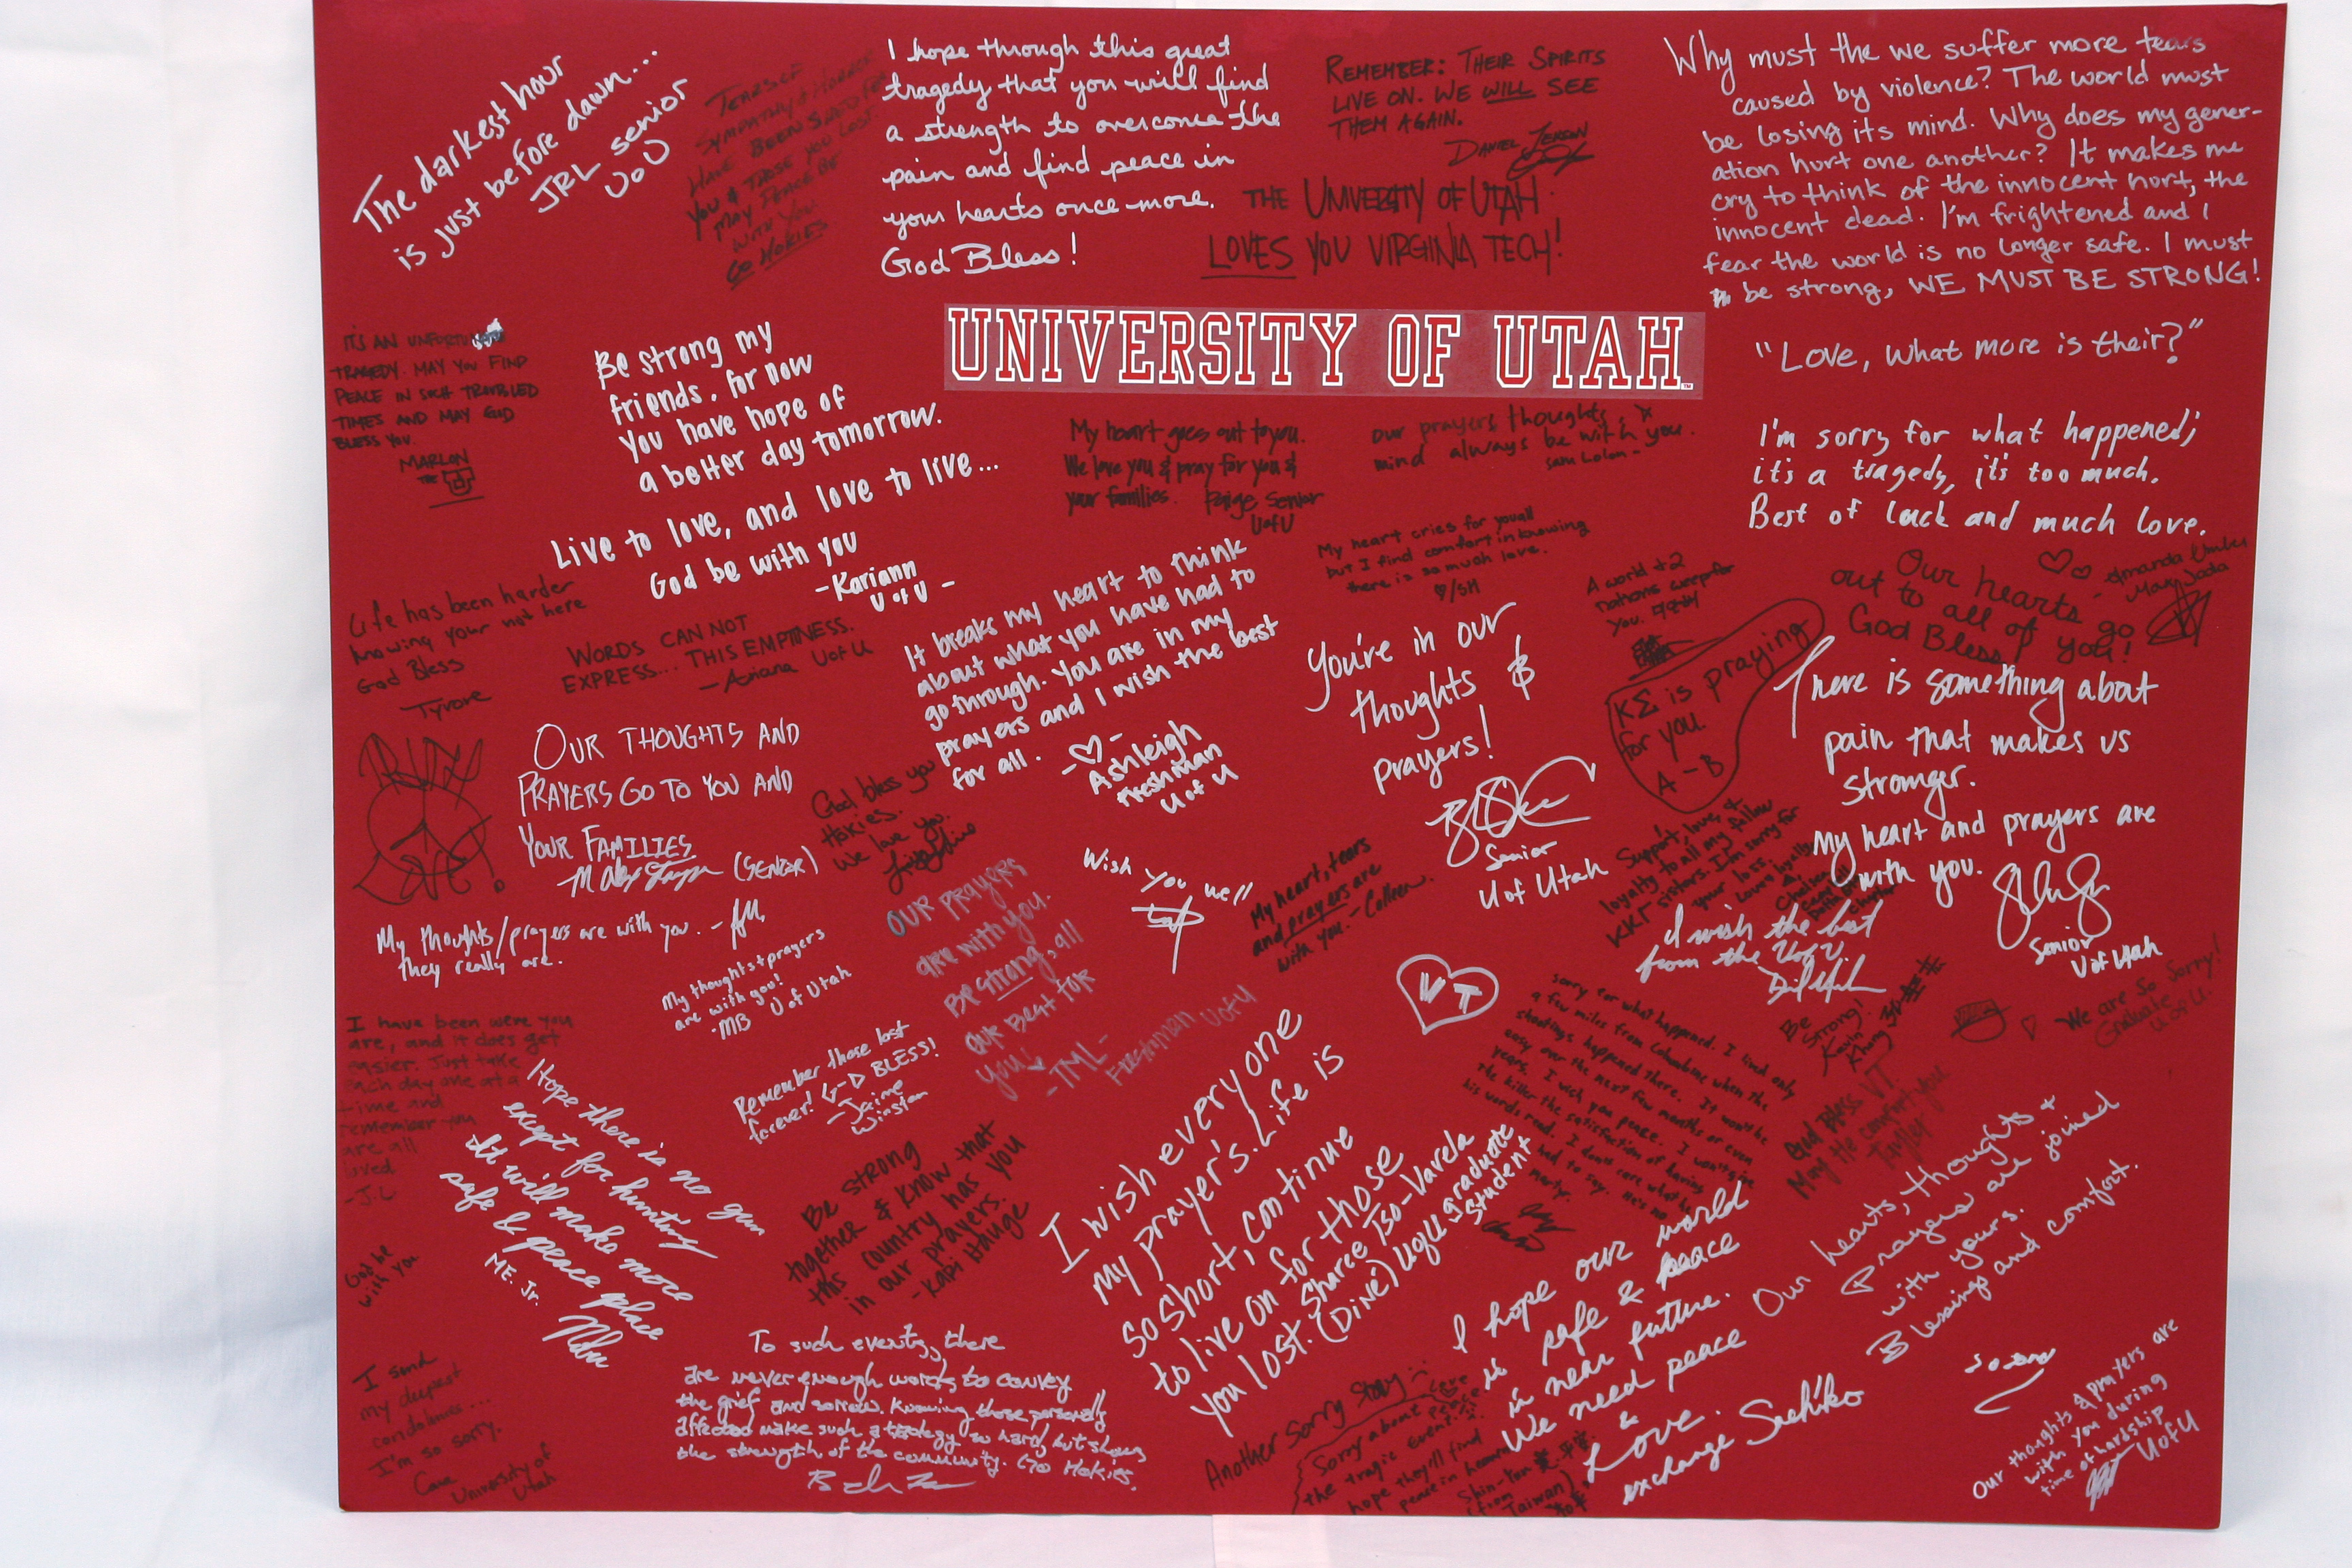 The darkest hour
is just before dawn...
JRL senior
UoU
TEARS OF
SYMPATHY & HORROR
HAVE BEEN
YOU & THOSE YOU LOST.
MAY PEACE BE
WITH YOU
GO HOKIES
I hope through this great
tragedy that you will find
a strength to overcome the
pain and find peace in
your hearts once more.
God Bless!
REMEMBER: THEIR SPIRITS
LIVE ON. WE WILL SEE
THEM AGAIN.
DANIEL
THE UNIVERSITY OF UTAH
LOVES YOU VIRGINIA TECH!
Why must the we suffer more tears
caused by violence? The world must
be losing its mind. Why does my gener-
ation hurt one another? It makes me
cry to think of the innocent hurt, the
innocent dead. I'm frightened and I
fear the world is no longer safe. I must
be strong, WE MUST BE STRONG!
"Love, what more is their?"
UNIVERSITY OF UTAH
TM
IT'S AN
TRAGEDY. MAY YOU FIND
PEACE IN SUCH TROUBLED
TIMES AND MAY GOD
BLESS YOU.
MARLON
THE U
Be strong my
friends, for now
you have hope of
a better day tomorrow.
Live to love, and love to live...
God be with you
-Kariann
U of U -
My heart goes out to you.
We love you & pray for you &
your families. Paige Senior
UofU
our prayers thoughts &
mind always be with you.
I'm sorry for what happened;
it's a tragedy, it's too much.
Best of luck and much love.
Amanda
My heart cries for you all
but I find comfort in knowing
there is so much love.
♡/SH
A world & 2
nations weep for
you.
Our hearts go
out to all of you!
God Bless
Life has been harder
knowing your not here
God Bless
Tyrone
WORDS CAN NOT
EXPRESS... THIS EMPTINESS.
- Ariana UofU
It breaks my heart to think
about what you have had to
go through. You are in my
prayers and I wish the best
for all.
-♡-
Ashleigh
Freshman
U of U
You're in our
thoughts &
prayers!
Senior
U of Utah
ΚΣ is praying
for you.
A-B
There is something about
pain that makes us
stronger.
My heart and prayers are
with you.
Senior
U of Utah
OUR THOUGHTS AND
PRAYERS GO TO YOU AND
YOUR FAMILIES
(SENIOR)
God bless you
Hokies.
We love you.
Support, love, &
loyalty to all my fellow
KKΓ sisters. I'm sorry for
your loss
I wish the best
from the UofU
My thoughts/prayers are with you.
they really are.
My thoughts + prayers
are with you!
-MB U of Utah
OUR PRAYERS
are with you.
Be strong, all
our best for
you
-TML-
Freshman UofU
Wish you well
My heart, tears
and prayers are
with you. - Colleen.
VT
Be
strong!
Kevin
Khang
We are so sorry!
Graduate
U of U.
sorry for what happened. I lived only
a few miles from Columbine when the
shootings happened there. It won't be
easy over the next few months or even
years. I wish you peace. I won't give
the killer the satisfaction of having
his words read. I don't care what he
had to say. He's no
martyr.
God Bless VT.
May He comfort you
Taylor
I have been were you
are, and it does get
easier. Just take
each day one at a
time and
remember you
are all
loved
-J.L
Hope there is no gun
except for hunting
It will make more
safe & peace place
ME. Jr.
Remember those lost
forever! G-D BLESS!
-Jaime
Winston
Be strong
together & know that
this country has you
in our prayers.
-KARI HAUGE
I wish every one
my prayer's. Life is
so short, continue
to live on for those
you lost. Sharee Tso-Varela
(Diné) UofU graduate
student
I hope our world
is safe & peace
in near future.
We need peace
&
Love.
exchange Sachiko
Our hearts, thoughts +
Prayers are joined
with yours.
Blessings and comfort.
God be
with you
I send
my deepest
condolences...
I'm so sorry.
Cara
University of
Utah
To such events, there
are never enough words to convey
the grief and sorrow. Knowing those personally
affected make such a tragedy so hard, but shows
the strength of the community. Go Hokies.
Another Sorry Story
Sorry about
the tragic event.
hope they'll find
peace in heaven
(from
Taiwan)
Our thoughts & prayers are
with you during
time of hardship
UofU